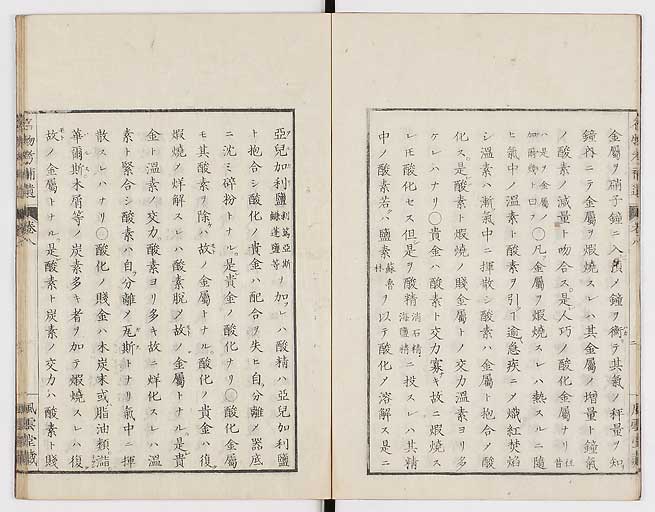 金屬ヲ硝子鐘ニ入預メ鐘ヲ衡テ其氣ノ秤量ヲ知
鐘內ニテ金屬ヲ煆燒スレハ其金屬ノ增量ト鐘氣
ノ酸素ノ減量ト吻合ス是人巧ノ酸化金屬ナリ往昔
ハ是ヲ金屬ノ加爾幾ト曰フ○凡金屬ヲ煆燒スレハ熱スルニ隨
ヒ氣中ノ溫素ト酸素ヲ引逾急疾ニメ熾紅焚焰
シ溫素ハ漸氣中ニ揮散シ酸素ハ金屬ト抱合ノ酸
化ス是酸素ト煆燒ノ賤金屬トノ交力溫素ヨリ多
ケレハナリ○貴金ハ酸素ト交力寡キ故ニ煆燒ス
レ𪜈酸化セス但是ヲ酸精消石精海鹽精ニ投スレハ其精
中ノ酸素若ハ鹽素蘇魯林ヲ以テ酸化ノ溶解ス是ニ
亞兒加利鹽剥篤亞斯蓬鹽等ヲ加フレハ酸精ハ亞兒加利鹽
ト抱合シ酸化ノ貴金ハ配合ヲ失ヒ自分離ノ器底
ニ沈ミ碎粉トナル是貴金ノ酸化ナリ○酸化金屬
モ其酸素ヲ除ハ故ノ金屬トナル酸化ノ貴金ハ復
煆燒ノ烊解スレハ酸素脫ノ故ノ金屬トナル是貴
金ト溫素ノ交力酸素ヨリ多キ故ニ烊化スレハ溫
素ト緊合シ酸素ハ自分離ノ瓦斯トナリ氣中ニ揮
散スレハナリ○酸化ノ賤金ハ木炭末或脂油類
華爾斯木屑等ノ炭素多キ者ヲ加テ煆燒スレハ復
故ノ金屬トナル是酸素ト炭素ノ交力ハ酸素ト賤
名物考補遺 卷八
風雲堂藏